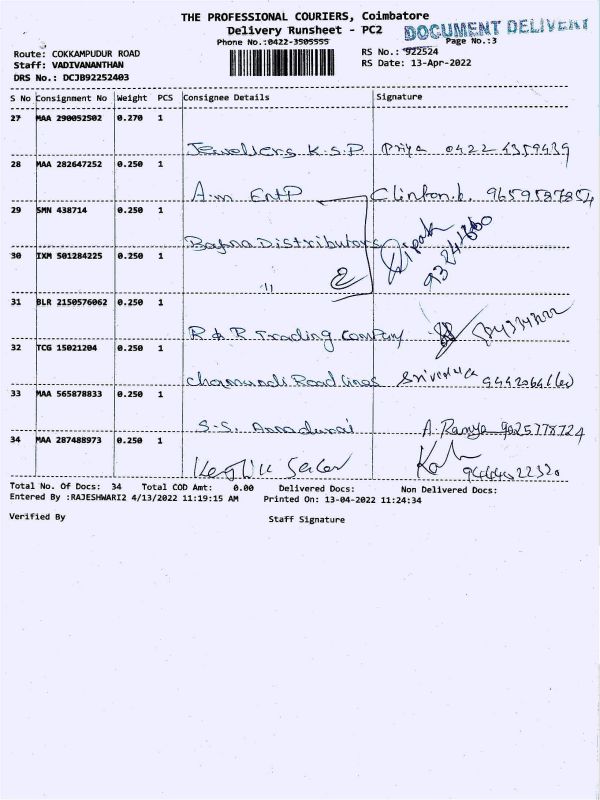 THE PROFESSIONAL COURIERS, Coimbatore
Delivery Runsheet - PC2
DOCUMENT DELIVERY
Phone No.:0422-3505555
Page No.:3
Route: COKKAMPUDUR ROAD
RS No.: 922524
Staff: VADIVANANTHAN
RS Date: 13-Apr-2022
DRS No.: DCJB92252403
S No Consignment No Weight PCS Consignee Details Signature
27 MAA 290052502 0.270 1
Jewellers K.S.P Priya 0422 4359439
28 MAA 282647252 0.250 1
A.m. EntP Clinton.b. 9659587854
29 SMN 438714 0.250 1
Bafna Distributors
30 IXM 501284225 0.250 1
" 2
31 BLR 2150576062 0.250 1
R & R Trading Company
32 TCG 15021204 0.250 1
Chamundi Road lines
33 MAA 565878833 0.250 1
S.S. Annadurai A. Ramya 9025778724
34 MAA 287488973 0.250 1
Total No. Of Docs: 34 Total COD Amt: 0.00 Delivered Docs: Non Delivered Docs:
Entered By :RAJESHWARI2 4/13/2022 11:19:15 AM Printed On: 13-04-2022 11:24:34
Verified By Staff Signature